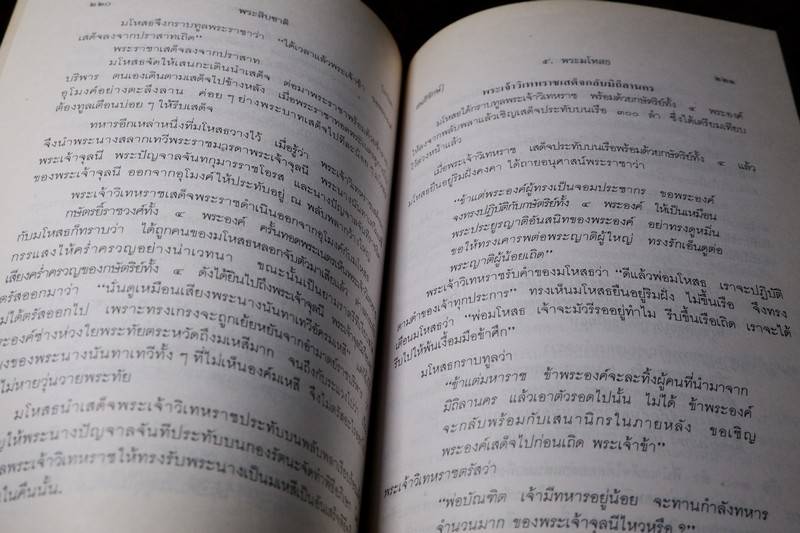 ๒๒๐
พระสิบชาติ
มโหสธจึงกราบทูลพระราชาว่า "ได้เวลาแล้วพระเจ้าข้า
เสด็จลงจากปราสาทเถิด"
พระราชาเสด็จลงจากปราสาท
มโหสธจัดให้เสนกะเดินนำเสด็จ ต่อมาพระราชาพร้อมด้วย
บริพาร ตนเองเดินตามเสด็จไปข้างหลัง เมื่อพระราชาทอดพระเนตร
อุโมงค์อย่างตะลึงลาน ค่อย ๆ ย่างพระบาทเสด็จไปทีละ
ต้องทูลเตือนบ่อย ๆ ให้รีบเสด็จ
ทหารอีกเหล่าหนึ่งที่มโหสธวางไว้ เมื่อรู้ว่า พระเจ้าวิเทหราช
จึงนำพระนางสลากเทวีพระราชมารดาพระเจ้าจุลนี พระนางนันทาเทวี
พระเจ้าจุลนี พระปัญจาลจันทกุมารราชโอรส และนางปัญจาลจันที
ของพระเจ้าจุลนี ออกจากอุโมงค์ให้ประทับอยู่ ณ พลับพลา
พระเจ้าวิเทหราชเสด็จพระราชดำเนินออกจากอุโมงค์กับมโหสธ
กษัตริย์ราชวงศ์ทั้ง ๔ พระองค์ ครั้นทอดพระเนตรเห็นพระเจ้าวิเทหราช
กับมโหสธก็ทราบว่า ได้ถูกคนของมโหสธหลอกจับตัวมาเสียแล้ว
กรรแสงให้คร่ำครวญอย่างน่าเวทนา ขณะนั้นเป็นยามราตรี
เสียงคร่ำครวญของกษัตริย์ทั้ง ๔ ดังได้ยินไปถึงพระเจ้าจุลนี
ตรัสออกมาว่า "นั่นดูเหมือนเสียงพระนางนันทาเทวีอัครมเหสี"
ไม่ได้ตรัสออกไป เพราะทรงเกรงจะถูกเย้ยหยันจากอำมาตย์ราชบริพาร
ระองค์ช่างห่วงใยพระทัยตระหวัดถึงมเหสีมาก จนถึงกับระแวงไปว่า
ยงของพระนางนันทาเทวีทั้ง ๆ ที่ไม่เห็นองค์มเหสี จึงไม่ตรัส
ไม่หายวุ่นวายพระทัย
มโหสธนำเสด็จพระเจ้าวิเทหราชประทับบนพลับพลา
ญให้พระนางปัญจาลจันทีประทับบนกองรัตนะจัดทำพิธี
ูลพระเจ้าวิเทหราชให้ทรงรับพระนางเป็นมเหสีเป็นอันเสร็จพิธี
ในคืนนั้น.
๕. พระมโหสธ
๒๒๑
พระเจ้าวิเทหราชเสด็จกลับมิถิลานคร
มโหสธได้กราบทูลพระเจ้าวิเทหราช พร้อมด้วยกษัตริย์ทั้ง ๔ พระองค์
ให้ลงจากพลับพลาแล้วเชิญเสด็จประทับบนเรือ ๓๐๐ ลำ ซึ่งได้เตรียมเทียบ
ไว้ล่วงหน้าแล้ว
เมื่อพระเจ้าวิเทหราช เสด็จประทับบนเรือพร้อมด้วยกษัตริย์ทั้ง ๔ แล้ว
มโหสธยืนอยู่ริมฝั่งคงคา ได้ถวายอนุศาสน์พระราชาว่า
"ข้าแต่พระองค์ผู้ทรงเป็นจอมประชากร ขอพระองค์
จงทรงปฏิบัติกับกษัตริย์ทั้ง ๔ พระองค์ ให้เป็นเหมือน
พระประยูรญาติอันสนิทของพระองค์ อย่าทรงดูหมิ่น
ขอให้ทรงเคารพต่อพระญาติผู้ใหญ่ ทรงรักเอ็นดูต่อ
พระญาติผู้น้อยเถิด"
พระเจ้าวิเทหราชรับคำของมโหสธว่า "ดีแล้วพ่อมโหสธ เราจะปฏิบัติ
ตามคำของเจ้าทุกประการ" ทรงเห็นมโหสธยืนอยู่ริมฝั่ง ไม่ขึ้นเรือ จึงทรง
เตือนมโหสธว่า "พ่อมโหสธ เจ้าจะมัวรีรออยู่ทำไม รีบขึ้นเรือเถิด เราจะได้
รีบไปให้พ้นเงื้อมมือข้าศึก"
มโหสธกราบทูลว่า
"ข้าแต่มหาราช ข้าพระองค์จะละทิ้งผู้คนที่นำมาจาก
มิถิลานคร แล้วเอาตัวรอดไปนั้น ไม่ได้ ข้าพระองค์
จะกลับพร้อมกับเสนานิกรในภายหลัง ขอเชิญ
พระองค์เสด็จไปก่อนเถิด พระเจ้าข้า"
พระเจ้าวิเทหราชตรัสว่า
"พ่อบัณฑิต เจ้ามีทหารอยู่น้อย จะทานกำลังทหาร
จำนวนมาก ของพระเจ้าจุลนีไหวหรือ ?"